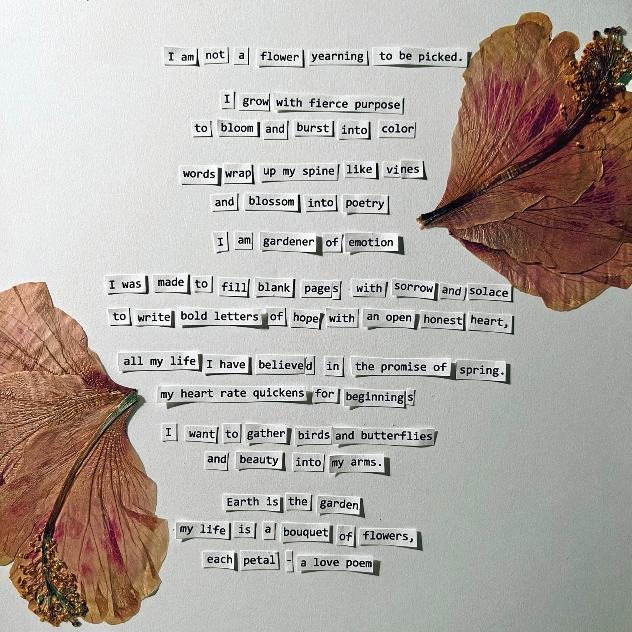 I am not a flower yearning to be picked.
I grow with fierce purpose
to bloom and burst into color
words wrap up my spine like vines
and blossom into poetry
I am gardener of emotion
I was made to fill blank pages with sorrow and solace
to write bold letters of hope with an open honest heart,
all my life I have believed in the promise of spring.
my heart rate quickens for beginnings
I want to gather birds and butterflies
and beauty into my arms.
Earth is the garden
my life is a bouquet of flowers,
each petal - a love poem